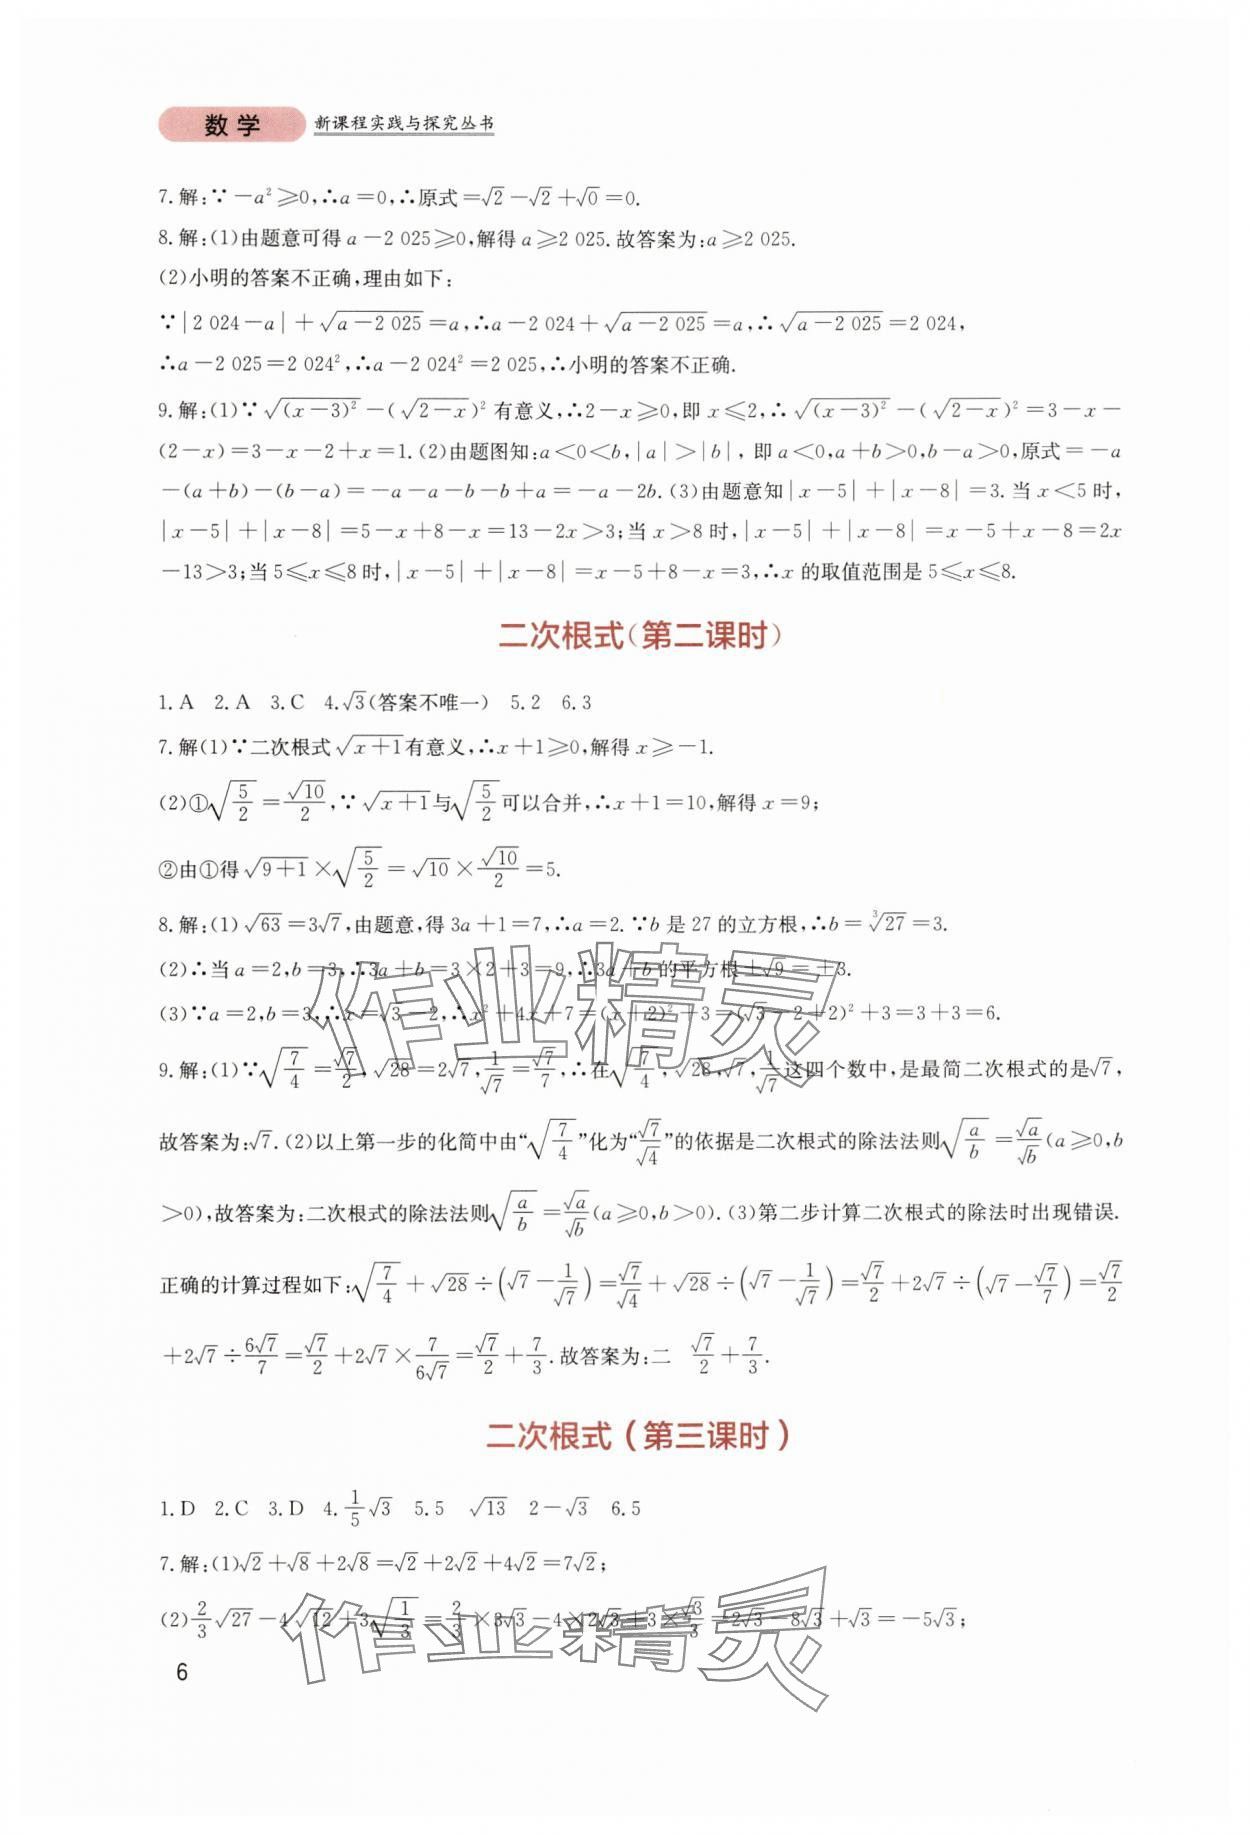 数学 新课程实践与探究丛书
7.解:∵-a²≥0,∴a=0,∴原式=√2-√2+√0=0.
8.解:(1)由题意可得 a-2 025≥0,解得 a≥2 025.故答案为:a≥2 025.
(2)小明的答案不正确,理由如下:
∵|2 024-a|+√(a-2 025)=a,∴a-2 024+√(a-2 025)=a,∴√(a-2 025)=2 024,
∴a-2 025=2 024²,∴a-2 024²=2 025,∴小明的答案不正确.
9.解:(1)∵√((x-3)²)-(√(2-x))²有意义,∴2-x≥0,即 x≤2,∴√((x-3)²)-(√(2-x))²=3-x-
(2-x)=3-x-2+x=1.(2)由题图知:a<0<b,|a|>|b|,即 a<0,a+b>0,b-a>0,原式=-a
-(a+b)-(b-a)=-a-a-b-b+a=-a-2b.(3)由题意知|x-5|+|x-8|=3.当 x<5 时,
|x-5|+|x-8|=5-x+8-x=13-2x>3;当 x>8 时,|x-5|+|x-8|=x-5+x-8=2x
-13>3;当 5≤x≤8 时,|x-5|+|x-8|=x-5+8-x=3,∴x 的取值范围是 5≤x≤8.
二次根式(第二课时)
1.A 2.A 3.C 4.√3(答案不唯一) 5.2 6.3
7.解(1)∵二次根式√(x+1)有意义,∴x+1≥0,解得 x≥-1.
(2)①√(5/2)=√10/2,∵√(x+1)与√(5/2)可以合并,∴x+1=10,解得 x=9;
②由①得√(9+1)×√(5/2)=√10×√10/2=5.
8.解:(1)√63=3√7,由题意,得 3a+1=7,∴a=2.∵b 是 27 的立方根,∴b=³√27=3.
(2)∴当 a=2,b=3,∴3a+b=3×2+3=9,∴3a+b 的平方根±√9=±3.
(3)∵a=2,b=3,∴x=√3-2,∴x²+4x+7=(x+2)²+3=(√3-2+2)²+3=3+3=6.
9.解:(1)∵√(7/4)=√7/2,√28=2√7,1/√7=√7/7,∴在√(7/4),√28,√7,1/√7这四个数中,是最简二次根式的是√7,
故答案为:√7.(2)以上第一步的化简中由“√(7/4)”化为“√7/√4”的依据是二次根式的除法法则√(a/b)=√a/√b(a≥0,b
>0),故答案为:二次根式的除法法则√(a/b)=√a/√b(a≥0,b>0).(3)第二步计算二次根式的除法时出现错误.
正确的计算过程如下:√(7/4)+√28÷(√7-1/√7)=√7/√4+√28÷(√7-1/√7)=√7/2+2√7÷(√7-√7/7)=√7/2
+2√7÷6√7/7=√7/2+2√7×7/6√7=√7/2+7/3.故答案为:二 √7/2+7/3.
二次根式(第三课时)
1.D 2.C 3.D 4.1/5√3 5.5 √13 2-√3 6.5
7.解:(1)√2+√8+2√8=√2+2√2+4√2=7√2;
(2)2/3√27-4√12+3√(1/3)=2/3×3√3-4×2√3+3×√3/3=2√3-8√3+√3=-5√3;
6
作业精灵
作业精灵